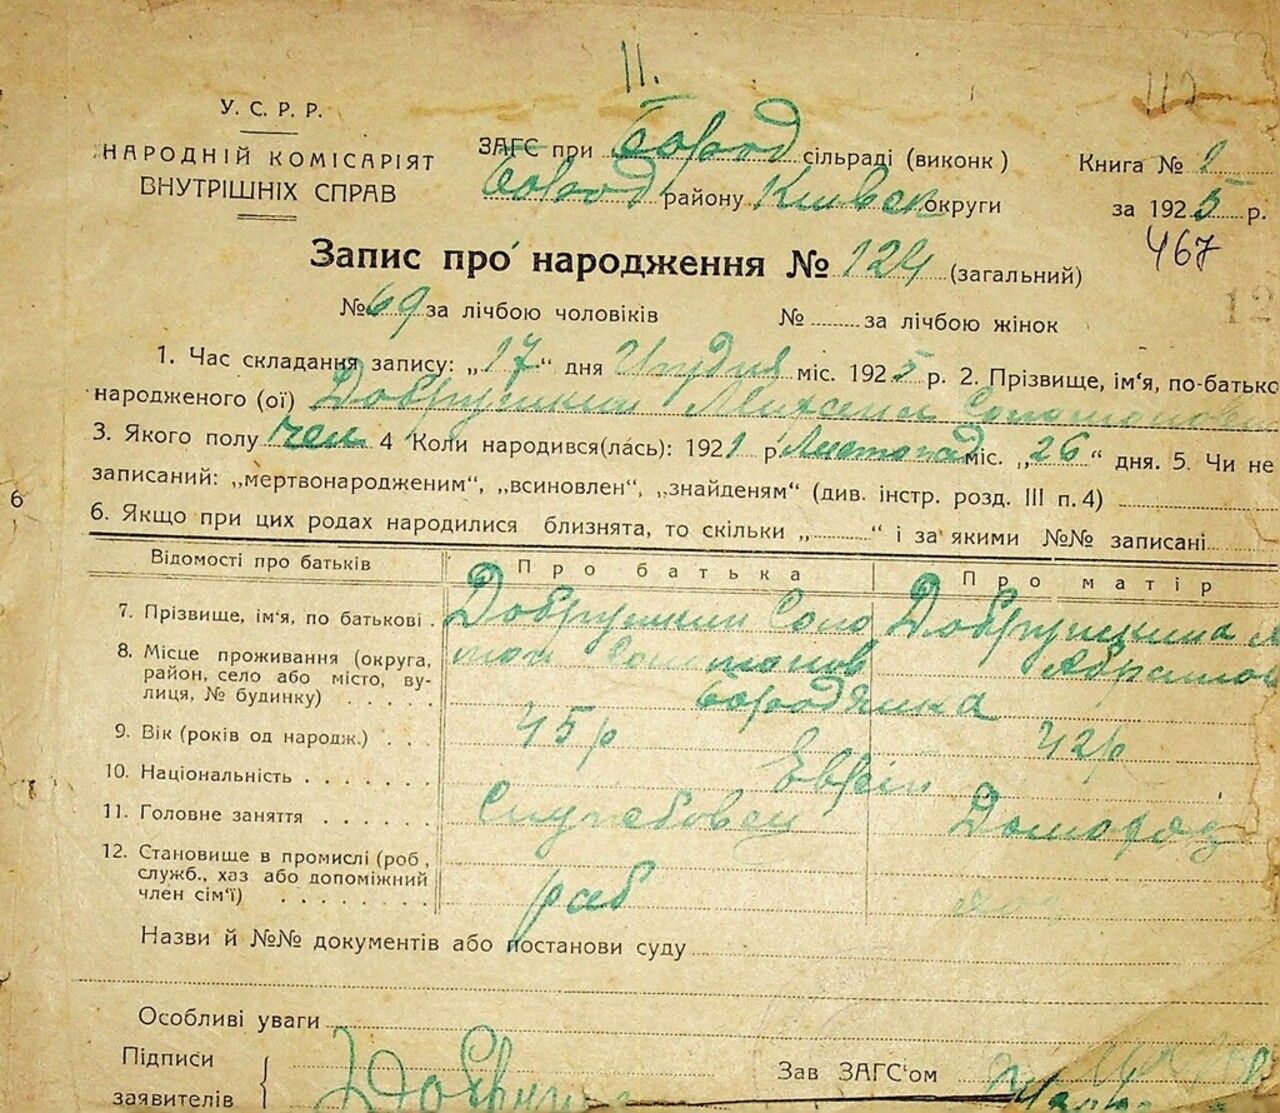 11.
112
У. С. Р. Р.
НАРОДНІЙ КОМІСАРІЯТ
ВНУТРІШНІХ СПРАВ
ЗАГС при Бород сільраді (виконк)
Бород району Київськ округи
Книга № 1
за 1925 р.
467
Запис про народження № 124 (загальний)
12
№ 69 за лічбою чоловіків № за лічбою жінок
1. Час складання запису: „17“ дня Грудня міс. 1925 р. 2. Прізвище, ім‘я, по-батько
народженого (ої) Добрушкин Михаил Соломонов
3. Якого полу чел 4 Коли народився(лась): 1921 р Листопад міс. „26“ дня. 5. Чи не
записаний: „мертвонародженим“, „всиновлен“, „знайденям“ (див. інстр. розд. III п. 4)
6. Якщо при цих родах народилися близнята, то скільки „ “ і за якими №№ записані
6
Відомості про батьків Про батька Про матір
7. Прізвище, ім‘я, по батькові . Добрушкин Соло Добрушкина
мон Соломонов Абрамов
8. Місце проживання (округа,
район, село або місто, ву-
лиця, № будинку) . . . . . Бородянка
9. Вік (років од народж.) . . . 45 р 42 р
10. Національність . . . . . . . Еврей
11. Головне заняття . . . . . . Службовец Домохоз
12. Становище в промислі (роб,
служб., хаз або допоміжний
член сім‘ї) . . . . . . . . раб
Назви й №№ документів або постанови суду
Особливі уваги
Підписи
заявителів
Добруш
Зав ЗАГС‘ом